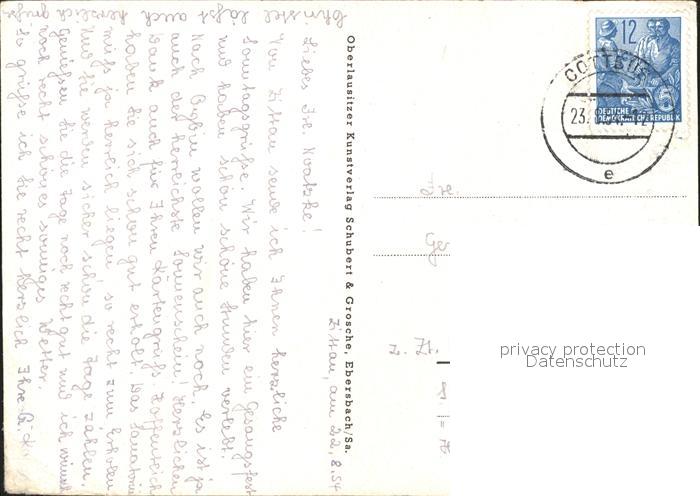 Zittau, am 22.8.54
Liebes Frl. Noatzke!
Von Zittau sende ich Ihnen herzliche
Sonntagsgrüße. Wir haben hier ein Gesangsfest
und haben schon schöne Stunden verlebt.
Nach Oybin wollen wir auch noch. Es ist ja
auch der herrlichste Sonnenschein! Herzlichen
Dank auch für Ihren Kartengruß. Hoffentlich
haben Sie sich schon gut erholt. Das Sanatorium
muß ja herrlich liegen, so recht zum Erholen
Und Sie werden sicher schon die Tage zählen.
Genießen Sie die Tage noch recht gut und ich wünsche
noch recht schönes sonniges Wetter.
So grüße ich Sie recht herzlich Ihre
läßt auch herzlich
Oberlausitzer Kunstverlag Schubert & Grosche, Ebersbach/Sa.
12
5
DEUTSCHE
DEMOKRATISCHE REPUBLIK
COTTBUS
23.
e
privacy protection
Datenschutz